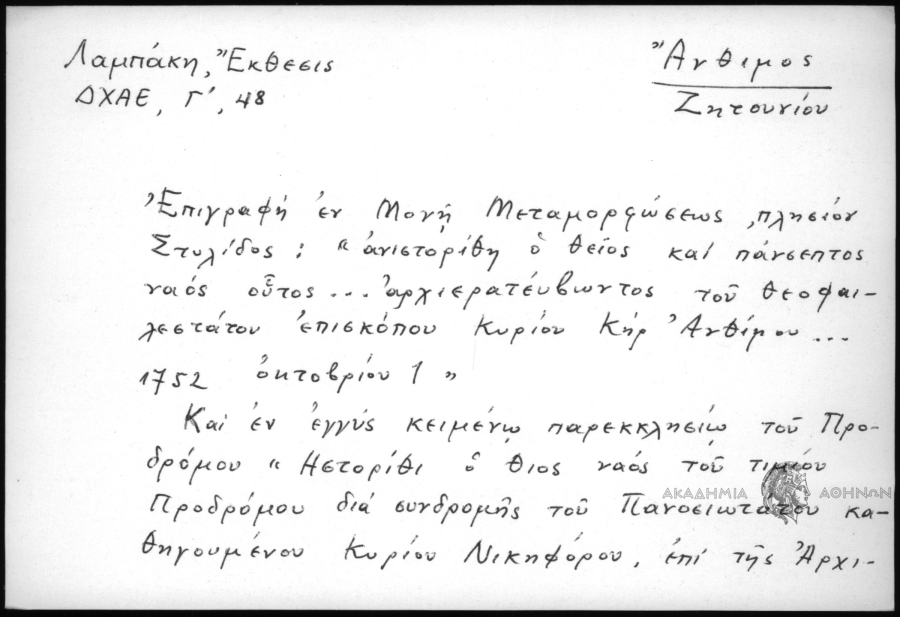 Λαμπάκη, Ἔκθεσις
ΔΧΑΕ, Γ', 48
Ἄνθιμος
Ζητουνίου
Ἐπιγραφή ἐν Μονῇ Μεταμορφώσεως, πλησίον
Στυλίδος : " ἀνιστορίθη ὁ θεῖος καί πάνσεπτος
ναός οὗτος ... ἀρχιερατέυβωντος τοῦ θεοφαι-
λεστάτου ἐπισκόπου Κυρίου Κήρ Ἀνθίμου ...
1752 ὀκτοβρίου 1 "
Καί ἐν ἐγγύς κειμένῳ παρεκκλησίῳ τοῦ Προ-
δρόμου " Ηστορίθι ὁ θιος ναός τοῦ τιμίου
Προδρόμου διά συνδρομῆς τοῦ Πανοσιωτάτου κα-
θηγουμένου Κυρίου Νικηφόρου, ἐπί τῆς Ἀρχι-
ΑΚΑΔΗΜΙΑ ΑΘΗΝΩΝ